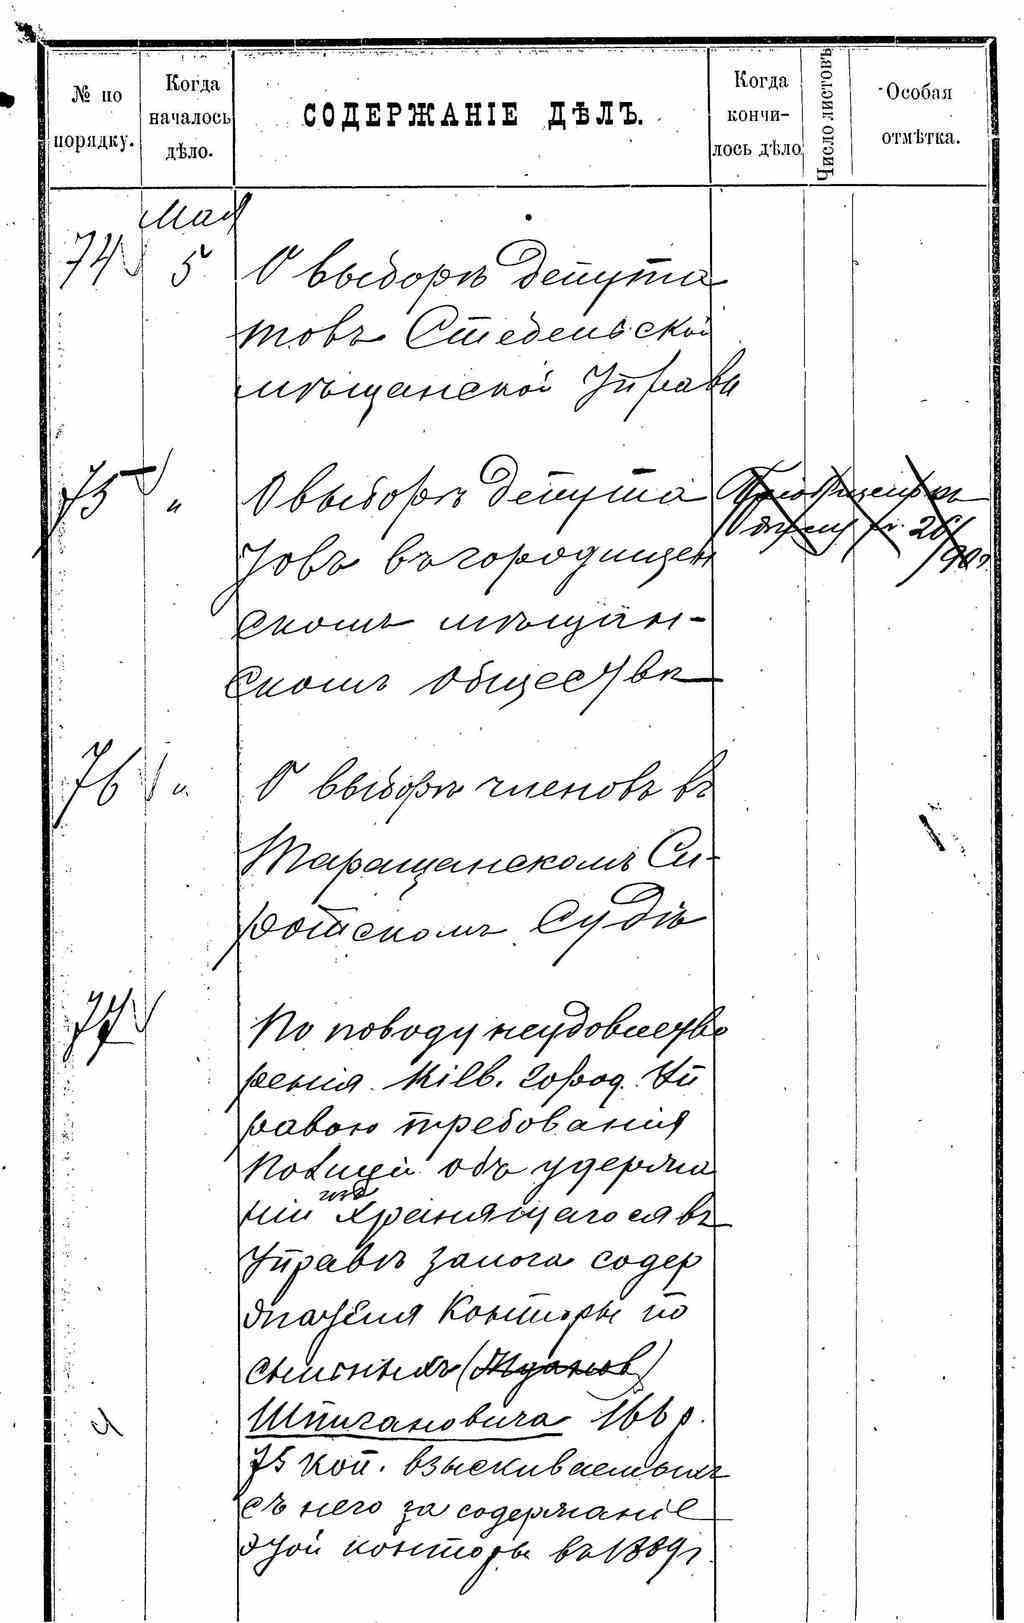 № по порядку.
Когда началось дѣло.
СОДЕРЖАНІЕ ДѢЛЪ.
Когда кончи-
лось дѣло
Число листовъ
Особая отмѣтка.
Мая
74 5 О выборѣ депута
товъ Стебельской
мѣщанской Управы
75 " О выборѣ депута
товъ въ городищен
скомъ мѣщан-
скомъ обществѣ
26/90г.
76 " О выборѣ членовъ въ
Таращанскомъ Си-
ротскомъ Судѣ
77 По поводу неудовлетво
ренія город. Уп
равою требованія
Полиціи объ удержа
ніи изъ хранящагося въ
Управѣ залога содер
жателя Конторы по
сыльныхъ
Шпигановича 166 р.
75 коп. взыскиваемыхъ
съ него за содержаніе
этой конторы въ 1889г.